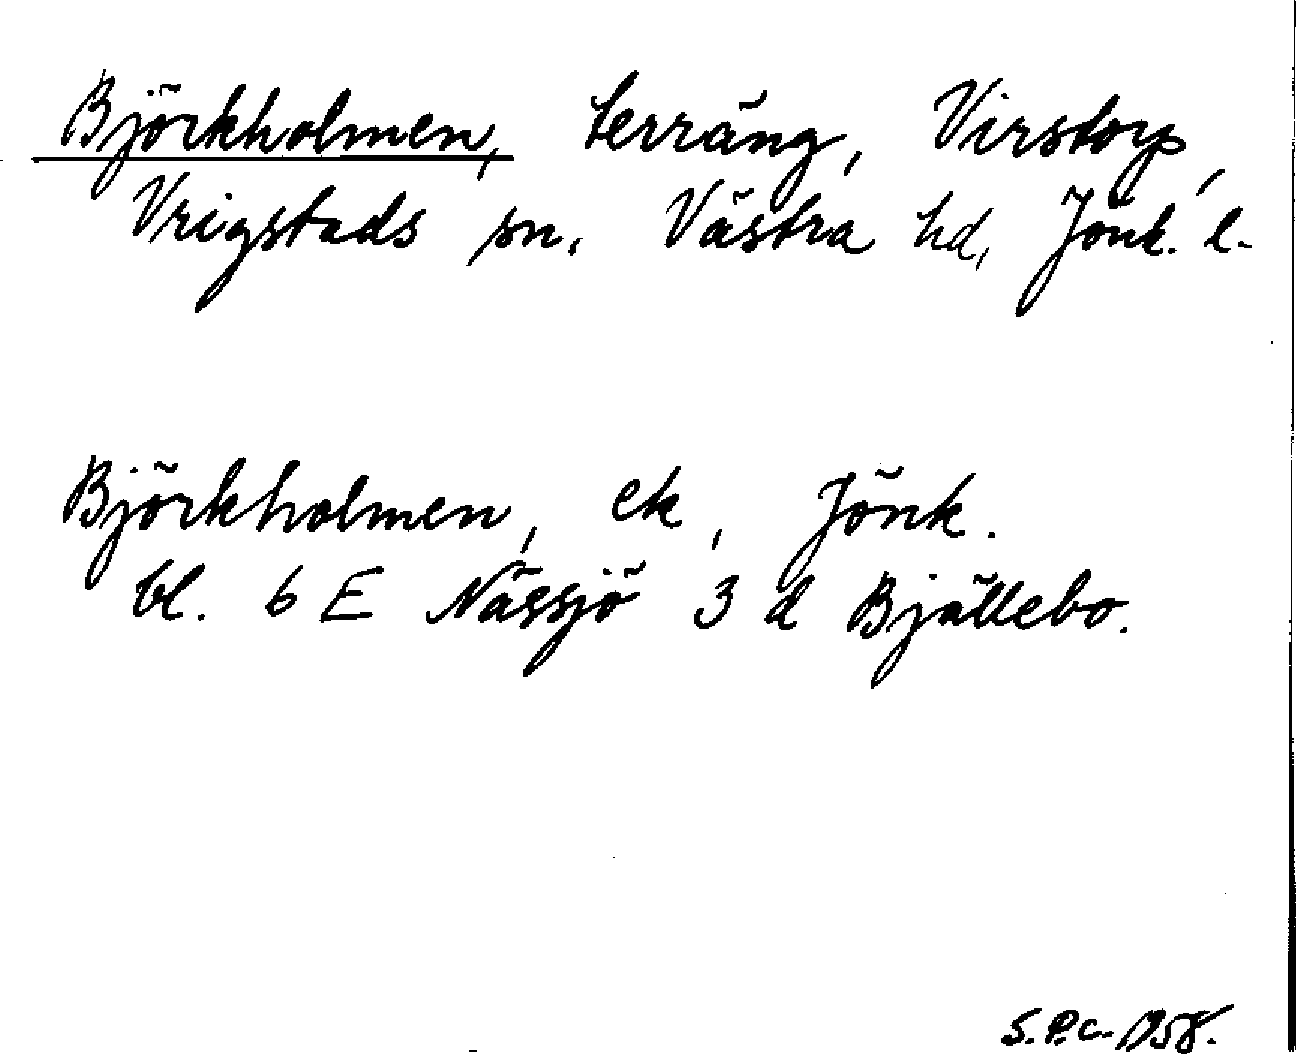 Björkholmen, terräng, Virstorp,
Vrigstads sn. Västra hd, Jönk. l.
Björkholmen, ek, Jönk.
bl. 6 E Nässjö 3 d Bjällebo.
S.P.C. 1958.